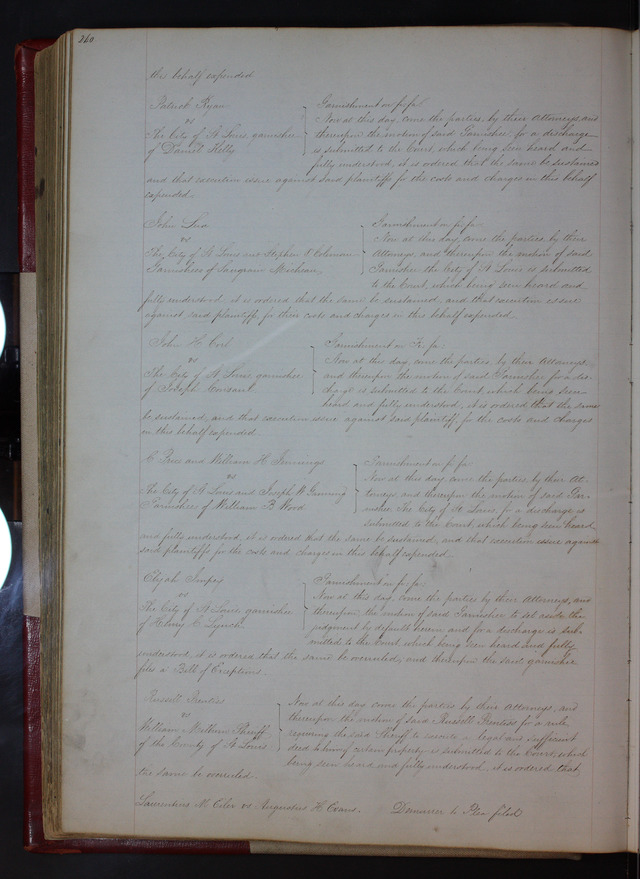 260
this behalf expended
Patrick Ryan } Garnishment on fi fa
vs Now at this day, come the parties, by their Attorneys, and
The City of St Louis, garnishee thereupon the motion of said Garnishee for a discharge
of Daniel Kelly is submitted to the Court, which being seen heard and
fully understood, it is ordered that the same be sustained
and that execution issue against said plaintiff for the costs and charges in this behalf
expended
John } Garnishment on fi fa
vs Now at this day, come the parties by their
The City of St Louis and Stephen V Coleman Attorneys, and thereupon the motion of said
Garnishees of Meehan Garnishee the City of St Louis is submitted
to the Court, which being seen heard and
fully understood, it is ordered that the same be sustained, and that execution issue
against said plaintiff for their costs and charges in this behalf expended
John H. } Garnishment on Fi. fa.
vs Now at this day, come the parties, by their Attorneys
The City of St Louis, garnishee and thereupon the motion of said Garnishee for a dis-
of Joseph charge is submitted to the Court, which being seen
heard and fully understood, it is ordered that the same
be sustained, and that execution issue against said plaintiff, for the costs and charges
in this behalf expended
C Price and William H. Jennings } Garnishment on fi fa
vs Now at this day, come the parties, by their At-
The City of St Louis and Joseph W. torneys, and thereupon the motion of said Gar-
Garnishees of William B Wood nishee The City of St. Louis, for a discharge is
submitted to the Court, which being seen heard
and fully understood, it is ordered that the same be sustained, and that execution issue against
said plaintiffs for the costs and charges in this behalf expended
Elijah } Garnishment on fi. fa.
vs Now at this day, come the parties by their Attorneys, and
The City of St Louis garnishee thereupon, the motion of said Garnishee to set aside the
of C. Lynch judgment by default herein and for a discharge is sub-
mitted to the Court which being seen heard and fully
understood, it is ordered that the same be overruled, and thereupon the said garnishee
files a Bill of Exceptions.
Russell Prentiss } Now at this day, come the parties by their Attorneys, and
vs thereupon the motion of said Russell Prentiss for a rule,
William Milburn Sheriff requiring the said Sheriff to execute a legal and sufficient
of the County of St Louis deed to him of certain property is submitted to the Court, which
being seen heard and fully understood, it is ordered that
the same be overruled
Laurentius M. Eiler vs Augustus H. Evans. Demurrer to Plea filed